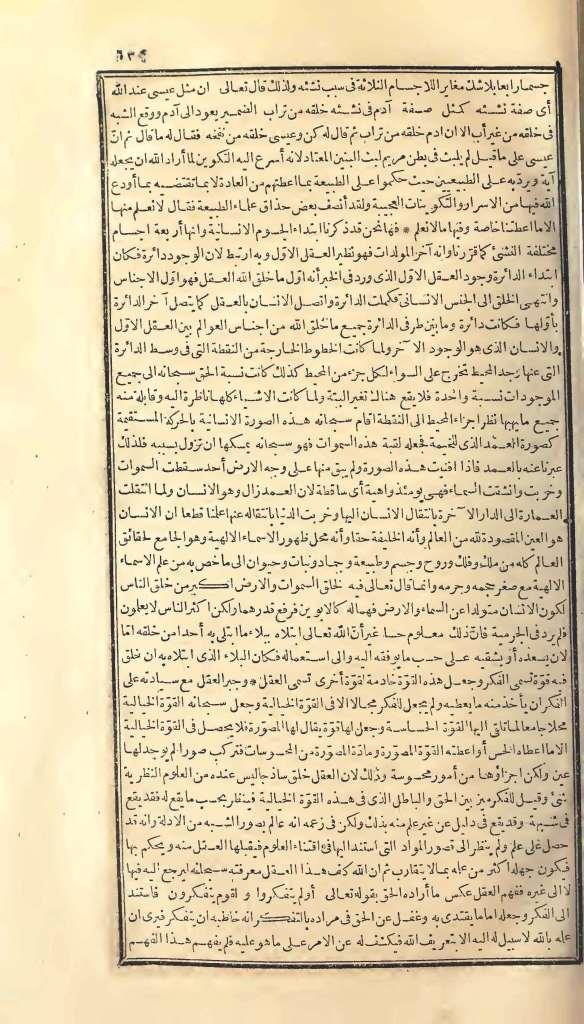 ١٣٤
جسما رابعا بلا شك مغاير اللاجسام الثلاثة فى سبب نشئه ولذلك قال تعالى ان مثل عيسى عند الله
أى صفة نشئه كمثل صفة آدم فى نشئه خلقه من تراب الضمير يعود الى آدم ووقع الشبه
فى خلقه من غير أب الا ان ادم خلقه من تراب ثم قال له كن وعيسى خلقه من نفخه فقال له ما قال ثم انّ
عيسى على ما قيل لم يلبث فى بطن مريم لبث البنين المعتاد لانه أسرع اليه التكوين لما أراد الله ان يجعله
آية ويردّ به على الطبيعيين حيث حكموا على الطبيعة بما اعطتهم من العادة لا بما تقتضيه بما أودع
الله فيها من الاسرار والتكوينات العجيبة ولقد أنصف بعض حذاق علماء الطبيعة فقال لا نعلم منها
الا ما اعطتنا خاصة وفيها ما لا نعلم * فها نحن قد ذكرنا ابتداء الجسوم الانسانية وانها أربعة اجسام
مختلفة النشئ كما قرّرناوانه آخر المولدات فهو نظير العقل الاول وبه ارتبط لان الوجود دائرة فكان
ابتداء الدائرة وجود العقل الاول الذى ورد فى الخبر أنه اول ما خلق الله العقل فهو اول الاجناس
وانتهى الخلق الى الجنس الانسانى فكملت الدائرة واتصل الانسان بالعقل كما يتصل آخر الدائرة
بأوّلها فكانت دائرة وما بين طرفى الدائرة جميع ما خلق الله من اجناس العوالم بين العقل الاوّل
والانسان الذى هو الوجود الآخر ولما كانت الخطوط الخارجة من النقطة التى فى وسط الدائرة
التى عنها يجد المحيط تخرج على السواء لكل جزء من المحيط كذلك كانت نسبة الحق سبحانه الى جميع
الموجودات نسبة واحدة فلا يقع هنالك تغير البتة ولما كانت الاشياء كلها ناظرة اليه وقابلة منه
جميع ما يهبها نظر اجزاء المحيط الى النقطة اقام سبحانه هذه الصورة الانسانية بالحركة المستقيمة
كصورة العمد الذى للخيمة فجعله لقبة هذه السموات فهو سبحانه يمسكها ان تزول بسببه فلذلك
عبرنا عنه بالعمد فاذا افنيت هذه الصورة ولم يبق منها على وجه الارض أحد سقطت السموات
وخربت وانشقت السماء فهى يومئذ واهية أى ساقطة لان العمد زال وهو الانسان ولما انتقلت
العمارة الى الدار الآخرة بانتقال الانسان اليها وخربت الدنيا بانتقاله عنها علمنا قطعا ان الانسان
هو العين المقصودة لله من العالم وأنه الخليفة حقا وأنه محل ظهور الاسماء الالهية وهو الجامع لحقائق
العالم كله من ملك وفلك وروح وجسم وطبيعة وجماد ونبات وحيوان الى ما خص به من علم الاسماء
الالهية مع صغر حجمه وجرمه وانما قال تعالى فيه خلق السموات والارض اكبر من خلق الناس
لكون الانسان متولدا عن السماء والارض فهما له كالابوين فرفع قدرهما ولكن اكثر الناس لا يعلمون
فلم يرد فى الجرمية فانّ ذلك معلوم حسا غير أنّ الله تعالى ابتلاه ببلاء ما ابتلى به أحدا من خلقه امّا
لان يسعده أو يشقيه على حسب ما يوفقه اليه والى استعماله فكان البلاء الذى ابتلاه به ان خلق
فيه قوة تسمى الفكر وجعل هذه القوّة خادمة لقوة أخرى تسمى العقل * وجبر العقل مع سيادته على
الفكر ان يأخذ منه ما يعطيه ولم يجعل للفكر مجالا الا فى القوّة الخيالية وجعل سبحانه القوّة الخيالية
محلا جامعا لما تاتى اليها القوّة الحساسة وجعل لها قوّة يقال لها المصوّرة فلا يحصل فى القوّة الخيالية
الا ما اعطاه الحس أو اعطته القوّة المصوّرة ومادّة المصوّرة من المحسوسات فتركب صورا لم يوجد لها
عين ولكن اجزاؤها من أمور محسوسة وذلك لان العقل خلق ساذجا ليس عنده من العلوم النظرية
شئ وقيل للفكر ميز بين الحق والباطل الذى فى هذه القوّة الخيالية فينظر بحسب ما يقع له فقد يقع
فى شبهة وقد يقع فى دليل عن غير علم منه بذلك ولكن فى زعمه انه عالم بصور الشبه من الادلة وانه قد
حصل على علم ولم ينظر الى تصور المواد التى استند اليها فى اقتناء العلوم فيقبلها العقل منه ويحكم بها
فيكون جهله اكثر من علمه بما لا يتقارب ثم ان الله كلف هذا العقل معرفته سبحانه ليرجع اليه فيها
لا الى غيره ففهم العقل عكس ما أراده الحق بقوله تعالى أولم يتفكروا و لقوم يتفكرون فاستند
الى الفكر وجعله اماما يقتدى به وغفل عن الحق فى مراده بالتفكر انه خاطبه ان يتفكر فيرى ان
علمه بالله لا سبيل له اليه الا بتعريف الله فيكشف له عن الامر على ما هو عليه فلم يفهم هذا الفهم